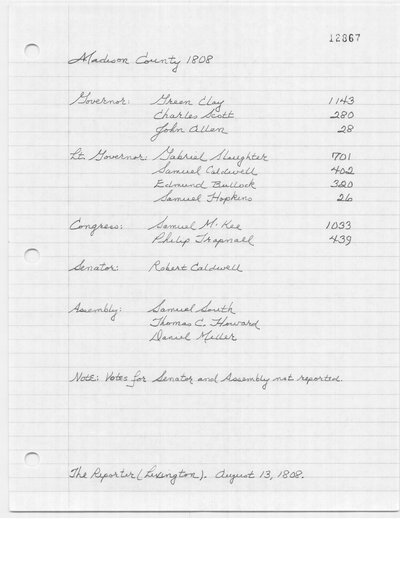 12867
Madison County 1808
Governor: Green Clay 1143
Charles Scott 280
John Allen 28
Lt. Governor: Gabriel Slaughter 701
Samuel Caldwell 402
Edmund Bullock 320
Samuel Hopkins 26
Congress: Samuel McKee 1033
Philip Trapnall 439
Senator: Robert Caldwell
Assembly: Samuel South
Thomas C. Howard
Daniel Miller
Note: Votes for Senator and Assembly not reported.
The Reporter (Lexington). August 13, 1808.